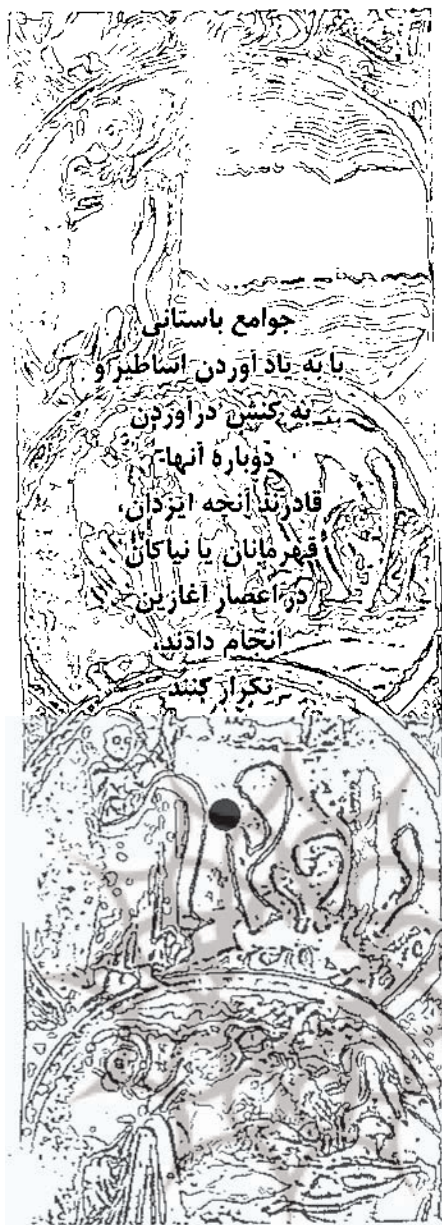 جوامع باستانی
با به یاد آوردن اساطیر و
به کنش درآوردن
دوباره آنها-
قادرند آنچه ایزدان،
قهرمانان یا نیاکان
در اعصار آغازین
انجام دادند،
تکرار کنند